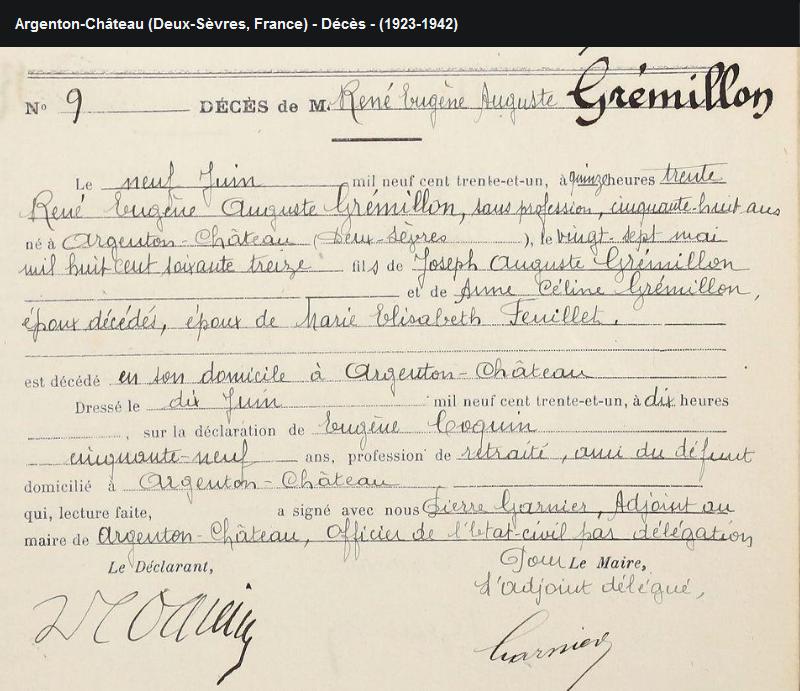 Argenton-Château (Deux-Sèvres, France) - Décès - (1923-1942)
N° 9 DÉCÈS de M. René Eugène Auguste Grémillon
Le neuf Juin mil neuf cent trente-et-un, à quinze heures trente
René Eugène Auguste Grémillon, sans profession, cinquante-huit ans
né à Argenton-Château (Deux-Sèvres), le vingt-sept mai
mil huit cent soixante treize fils de Joseph Auguste Grémillon
et de Anne Céline Grémillon,
époux décédés, époux de Marie Elisabeth Feuillet.
est décédé en son domicile à Argenton-Château
Dressé le dix Juin mil neuf cent trente-et-un, à dix heures
, sur la déclaration de Eugène Coquin
cinquante-neuf ans, profession de retraité, ami du défunt
domicilié à Argenton-Château
qui, lecture faite, a signé avec nous Pierre Garnier, Adjoint au
maire de Argenton-Château, Officier de l'Etat-civil par délégation
Le Déclarant, Pour Le Maire,
L'adjoint délégué,
Coquin
Garnier